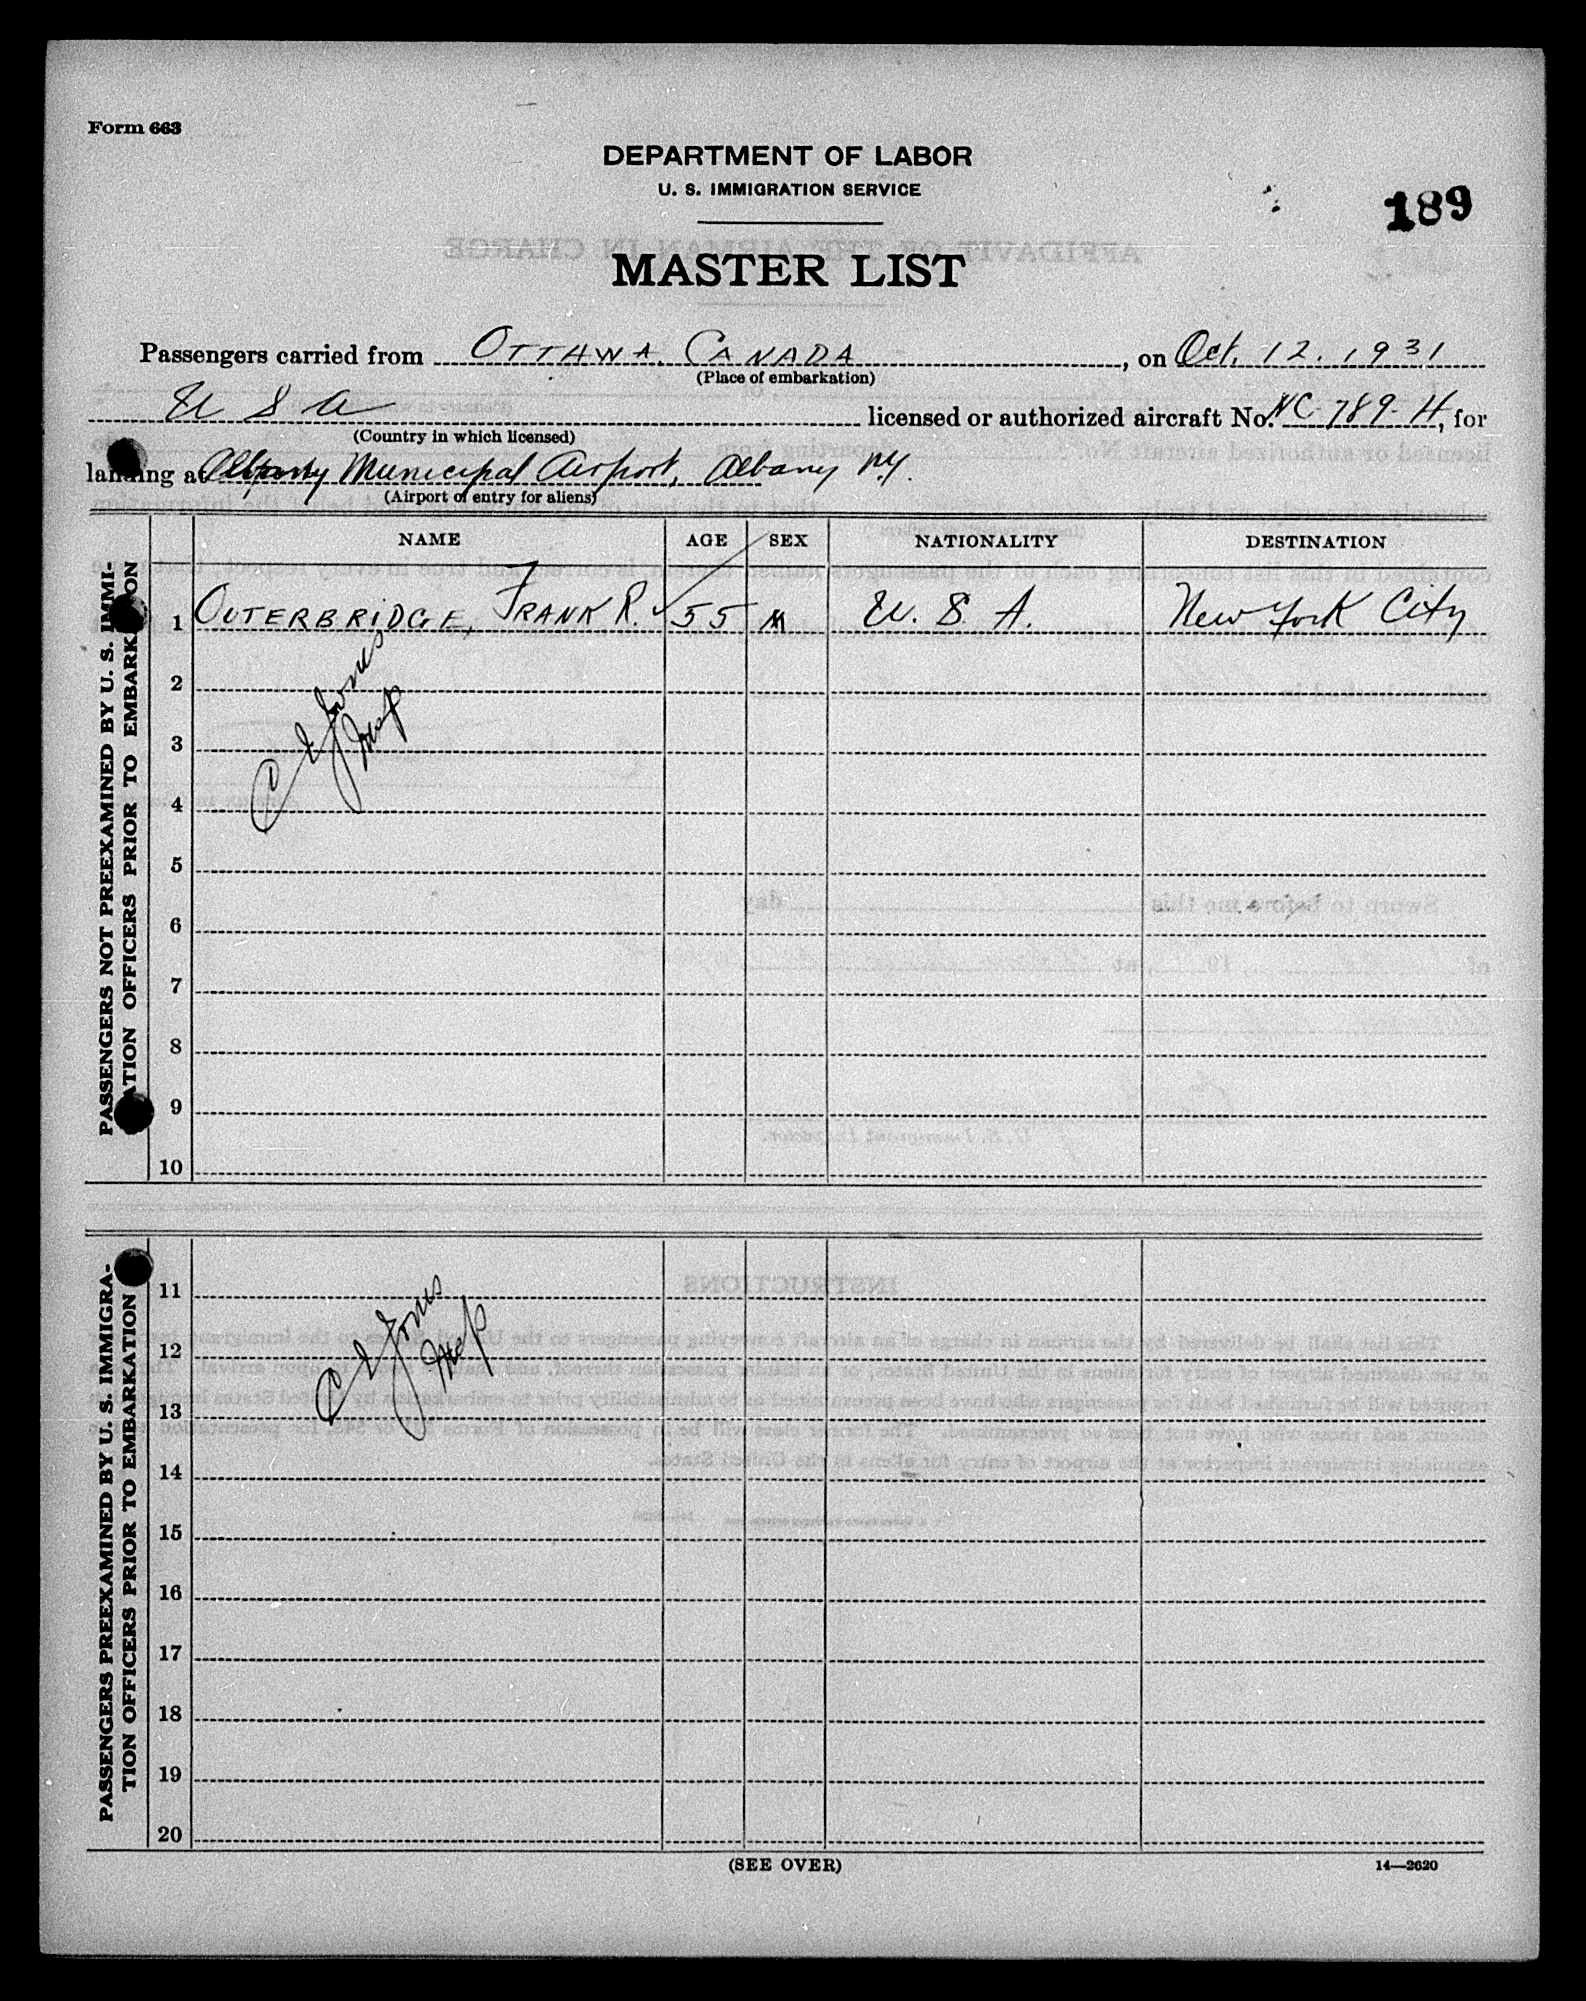 Form 663
DEPARTMENT OF LABOR
U. S. IMMIGRATION SERVICE
189
MASTER LIST
Passengers carried from OTTAWA, CANADA, on Oct. 12. 1931
(Place of embarkation)
U S A licensed or authorized aircraft No. NC-789-H, for
(Country in which licensed)
landing at Albany Municipal Airport, Albany N.Y.
(Airport of entry for aliens)
NAME AGE SEX NATIONALITY DESTINATION
PASSENGERS NOT PREEXAMINED BY U. S. IMMI-
GRATION OFFICERS PRIOR TO EMBARKATION
1 OUTERBRIDGE, FRANK R. ✓ 55 M U. S. A. New York City
2
C E Jones
Insp
3
4
5
6
7
8
9
10
PASSENGERS PREEXAMINED BY U. S. IMMIGRA-
TION OFFICERS PRIOR TO EMBARKATION
11
C E Jones
Insp
12
13
14
15
16
17
18
19
20
(SEE OVER)
14—2620